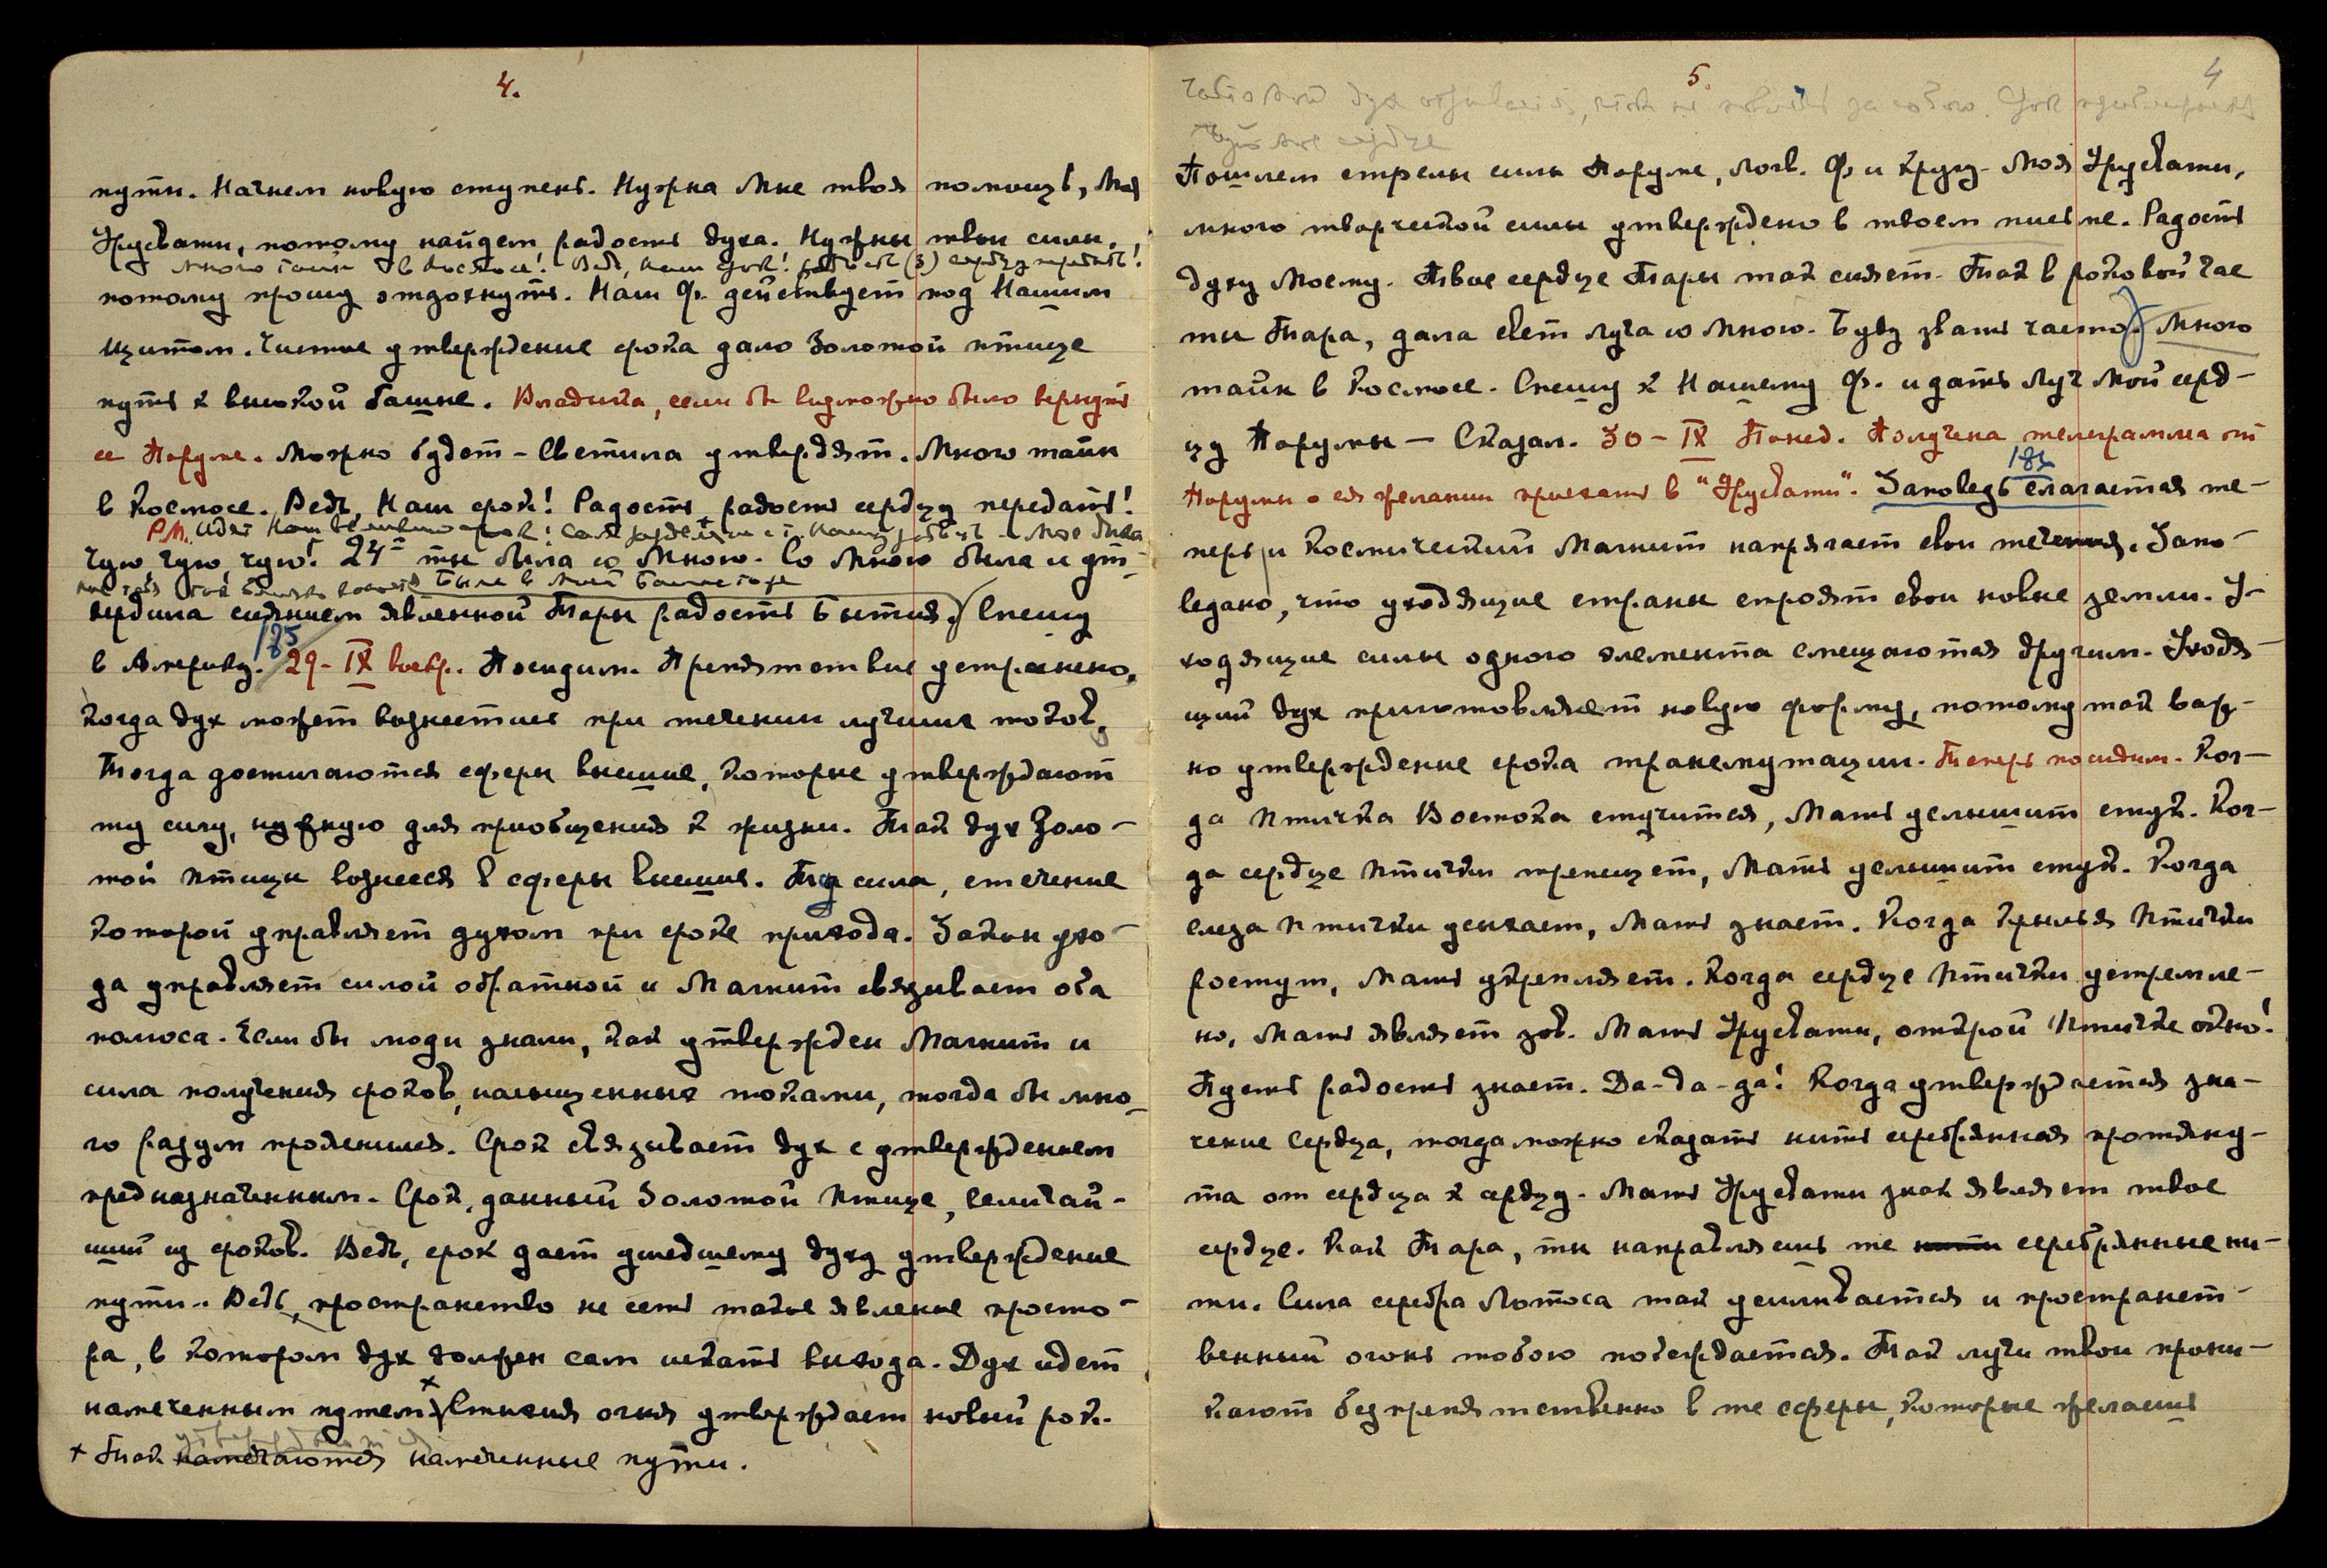 4.
пути. Начнем новую ступень. Нужна Мне твоя помощь, Моя
Урусвати, потому найдем радость духа. Нужны твои силы,
много тайн в Космосе! Ведь, Наш срок! сердцу передать!
потому прошу отдохнуть. Наш Ф. действует под Нашим
щитом. Чистое утверждение срока дало Золотой птице
путь к высокой башне. Владыка, если бы возможно было вернуть
ее Поруме. Можно будет – Светила утвердят. Много тайн
в Космосе. Ведь, Наш срок! Радость, радость сердцу передать!
Р.М. Идет Наш срок!
Чую, чую, чую! 24= ты была со Мною. Со Мною была и ут-
была в Моей Башне
вердила сиянием явленной Тары радость Бытия.) Спешу
185
в Америку. 29-IX воскр. Посидим. Препятствие устранено.
Когда дух может вознестись при течении лучших токов,
тогда достигаются сферы высшие, которые утверждают
ту силу, нужную для приобщения к жизни. Так дух Золо-
той птицы вознесся в сферы высшие. Та сила, стечение
которой управляет духом при сроке прихода. Закон ухо-
да управляет силой обратной и Магнит связывает оба
полюса. Если бы люди знали, как утвержден Магнит и
сила получения сроков, насыщенных токами, тогда бы мно-
го разум прояснился. Срок связывает дух с утверждением
предназначенным. Срок, данный Золотой Птице, величай-
ший из сроков. Ведь, срок дает ушедшему духу утверждение
пути. Ведь, пространство не есть такое явление просто-
ра, в котором дух должен сам искать выхода. Дух идет
намеченным путем. × Стихия огня утверждает новый рок.
+ Так намечаются намеченные пути.
5.
4
дух за собою. Срок
сердце
Пошлем стрелы силы Поруме, Логв. Ф и кругу. Моя Урусвати,
много творческой силы утверждено в твоем письме. Радость
духу Моему. Твое сердце Тары так сияет. Так в роковой час
ты Тара, дала свет луча со Мною. Буду звать часто.) Много
тайн в Космосе. Спешу к Нашему Ф. и дать луч Мой серд-
цу Порумы – Сказал. 30-IX Понед. Получена телеграмма от
186
Порумы о ея желании приехать в "Урусвати". Заповедь слагается те-
перь и Космический Магнит напрягает свои течения. Запо-
ведано, что уходящие страны строят свои новые земли. У-
ходящие силы одного элемента смещаются другим. Уходя-
щий дух приготовляет новую форму, потому так важ-
но утверждение срока трансмутации. Теперь посидим. Ког-
да птичка Востока стучится, Мать услышит стук. Ког-
да сердце птички трепещет, Мать услышит стук. Когда
слеза птички усыхает, Мать знает. Когда крылья Птички
ростут, Мать укрепляет. Когда сердце Птички устремле-
но, Мать являет зов. Мать Урусвати, открой Птичке окно!
Пусть радость знает. Да-да-да! Когда утверждается зна-
чение Сердца, тогда можно сказать нить серебряная протяну-
та от сердца к сердцу. Мать Урусвати знак являет твое
сердце. Как Тара, ты направляешь те нити серебрянные ни-
ти. Сила серебра Лотоса так усиливается и пространст-
венный огонь тобою побеждается. Так лучи твои прони-
кают безпрепятственно в те сферы, которые желаешь